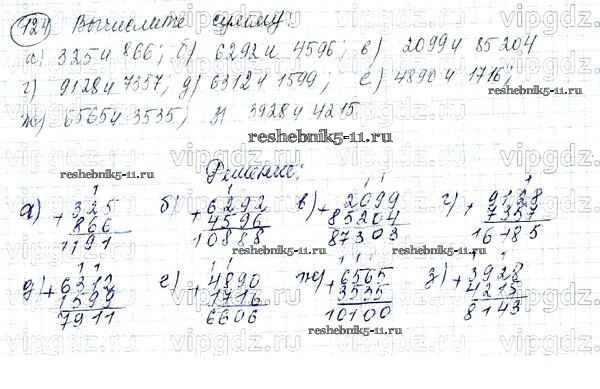 124 Вычислите сумму:
а) 325 и 866; б) 6292 и 4596; в) 2099 и 85204
г) 9128 и 7357; д) 6312 и 1599; е) 4890 и 1716;
ж) 6565 и 3535; з) 3928 и 4215
reshebnik5-11.ru
Решение:
а) + 325 б) + 6292 в) + 2099 г) + 9128
866 4596 85204 7357
1191 10888 87303 16485
reshebnik5-11.ru
д) + 6312 е) + 4890 ж) + 6565 з) + 3928
1599 1716 3535 4215
7911 6606 10100 8143
reshebnik5-11.ru